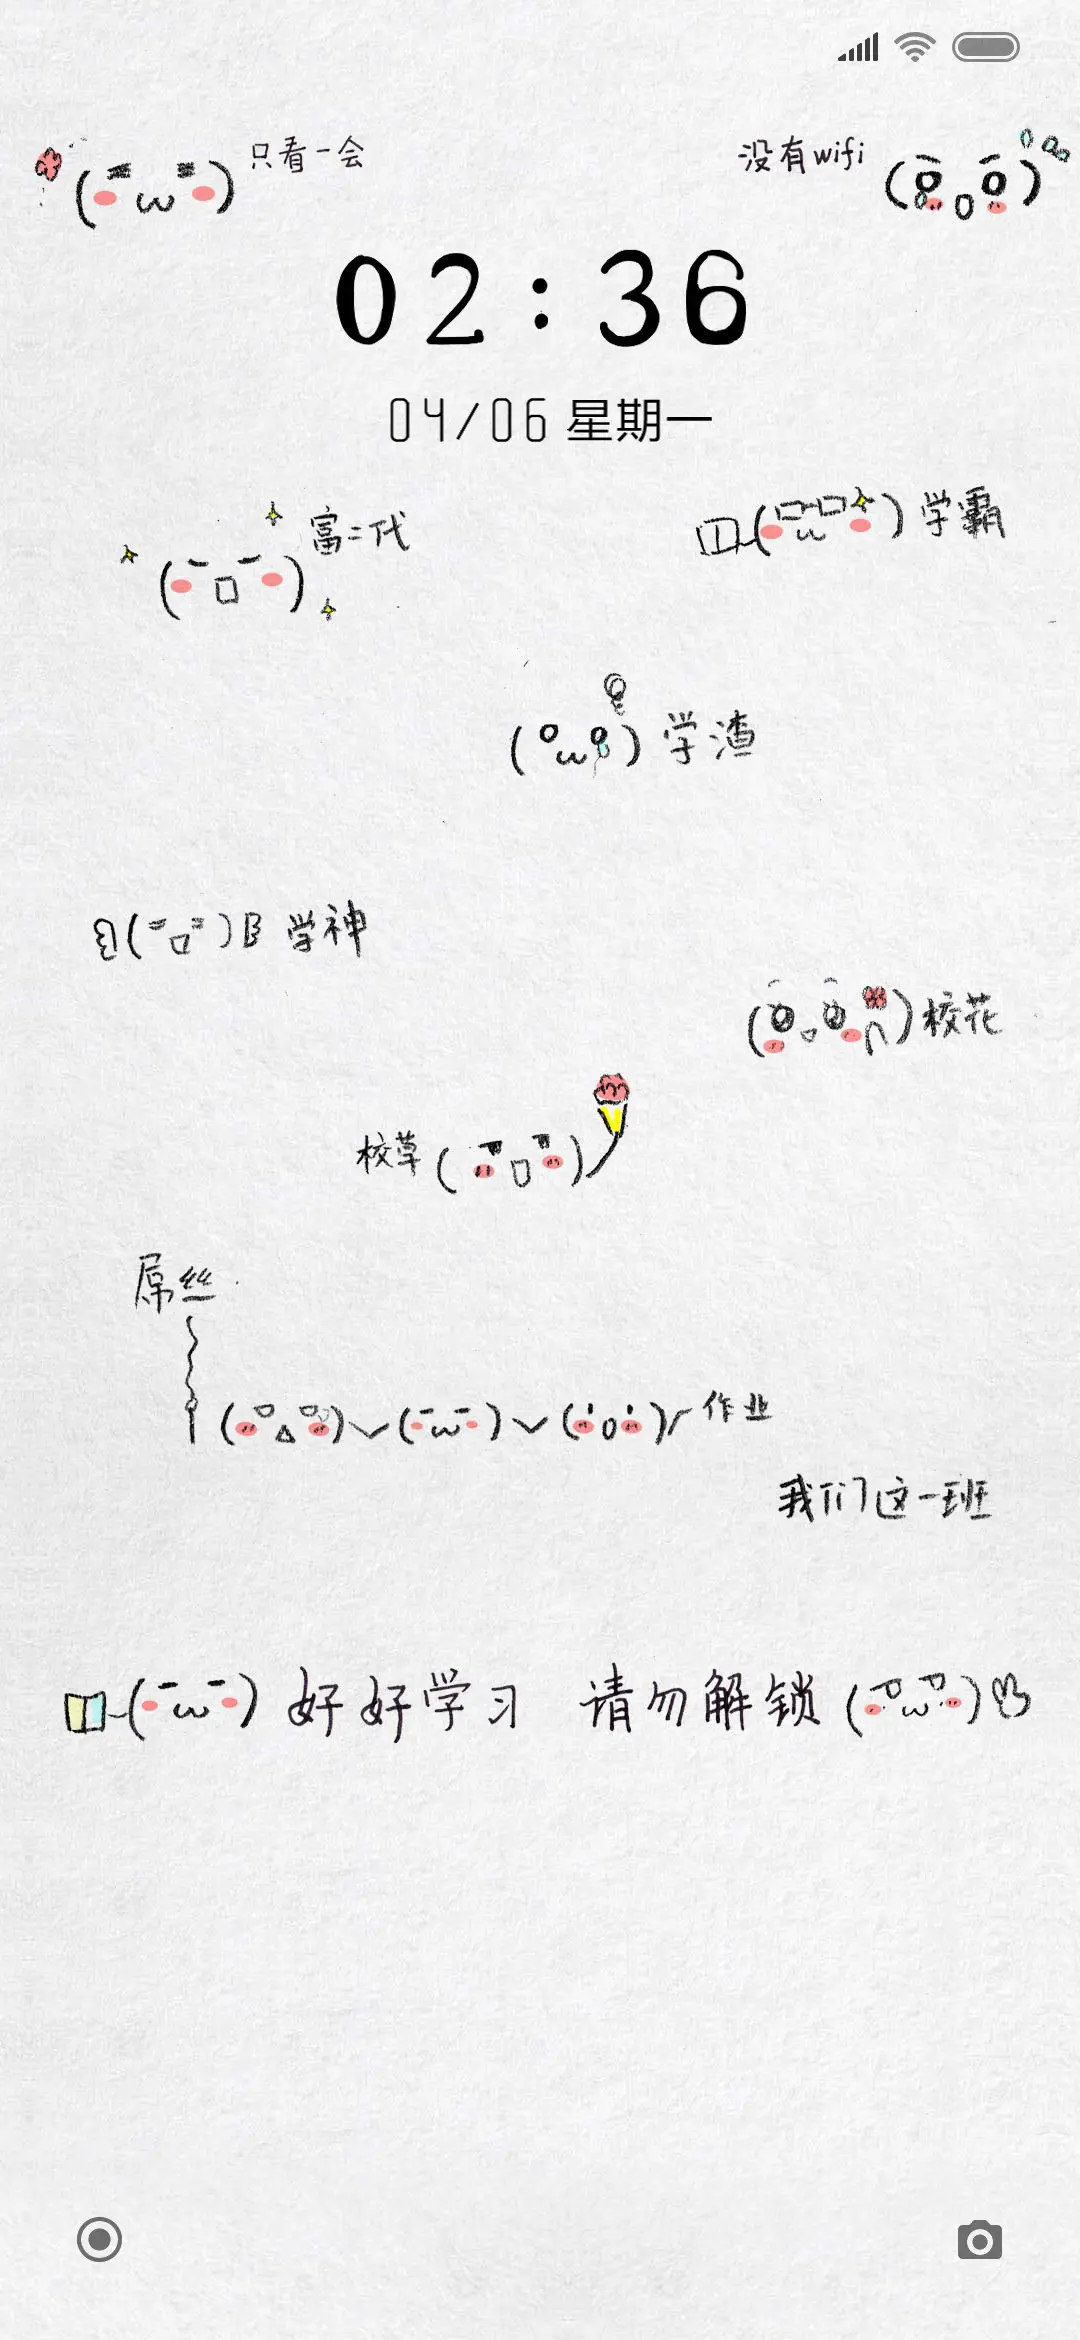 只看一会
没有wifi
02:36
04/06 星期一
富二代
学霸
学渣
学神
校花
校草
屌丝
作业
我们这一班
好好学习 请勿解锁